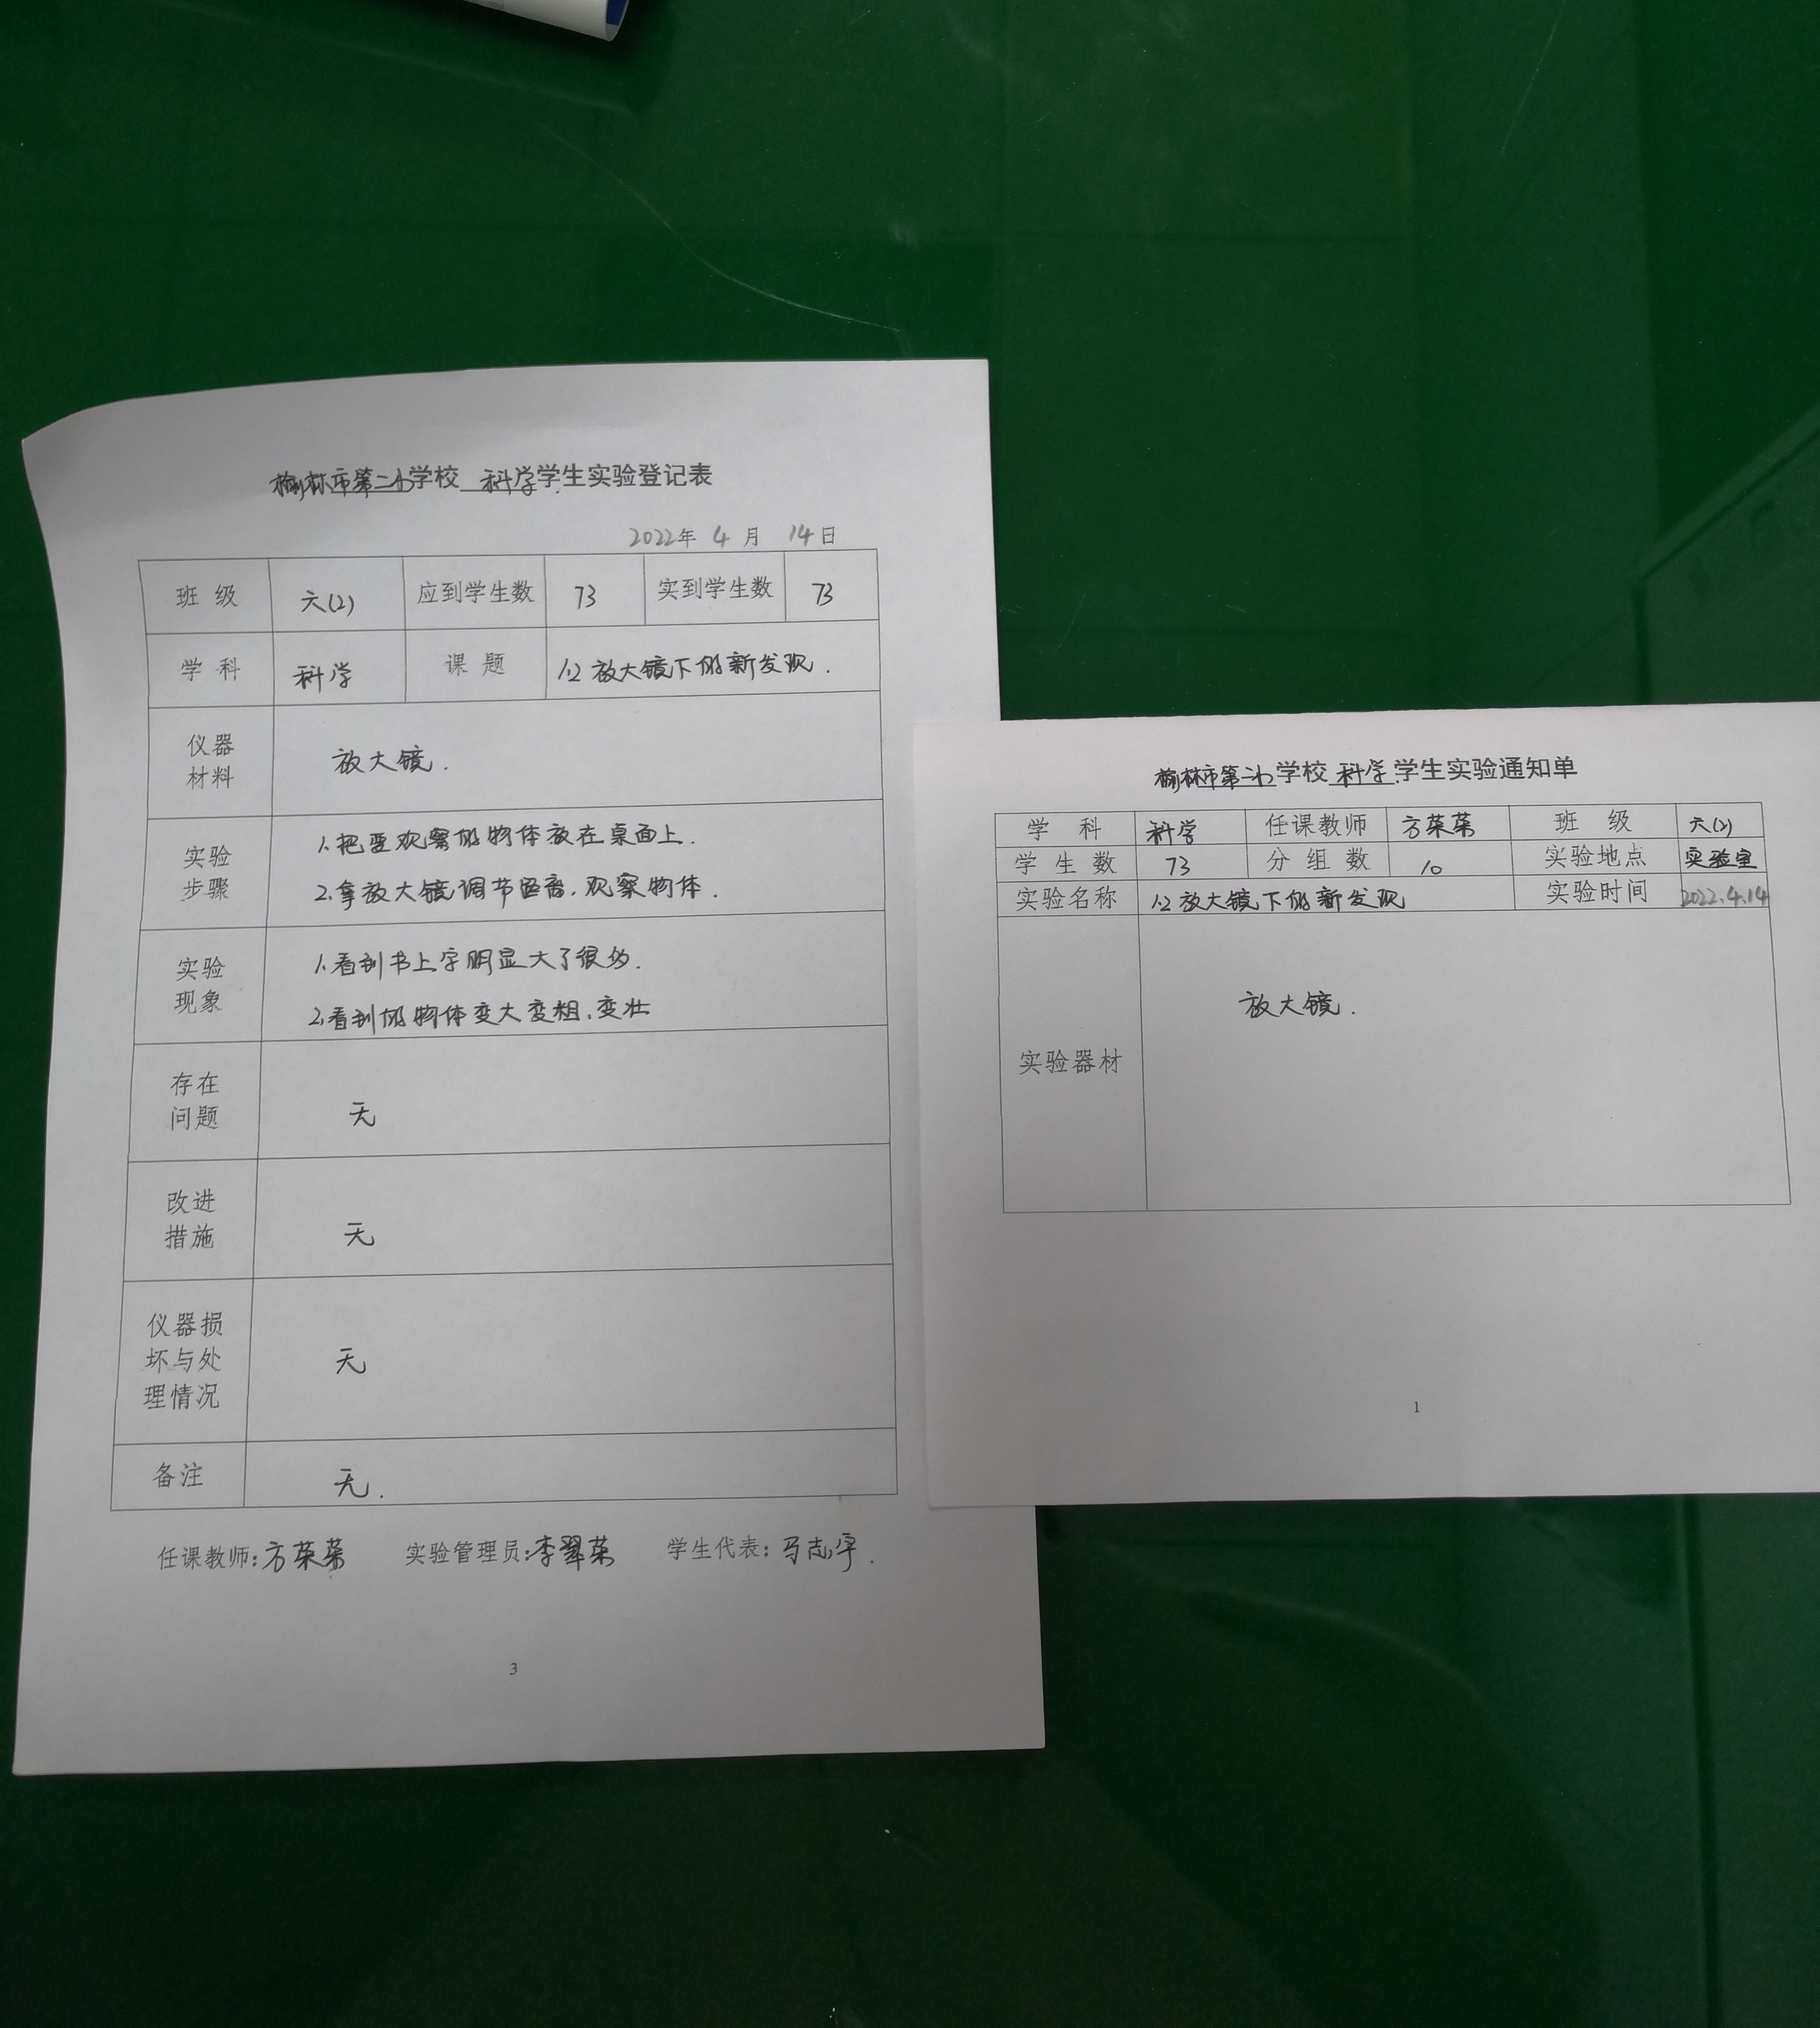 榆林市第二小学校 科学学生实验登记表
2022年 4 月 14日
班 级 六(2) 应到学生数 73 实到学生数 73
学 科 科学 课 题 1.2 放大镜下的新发现.
仪器
材料
放大镜.
实验
步骤
1.把要观察的物体放在桌面上.
2.拿放大镜调节距离,观察物体.
实验
现象
1.看到书上字明显大了很多.
2.看到的物体变大变粗,变壮
存在
问题
无
改进
措施
无
仪器损
坏与处
理情况
无
备注 无.
任课教师:方荣荣 实验管理员:李翠荣 学生代表:马志宇.
3
榆林市第二小学校科学学生实验通知单
学 科 科学 任课教师 方荣荣 班 级 六(2)
学 生 数 73 分 组 数 10 实验地点 实验室
实验名称 1.2 放大镜下的新发现 实验时间 2022.4.14
实验器材 放大镜.
1